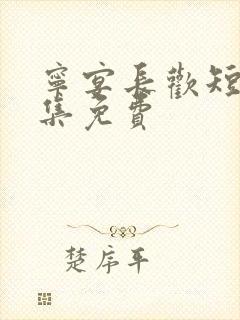 寧宴長歡短
集免費
楚席平